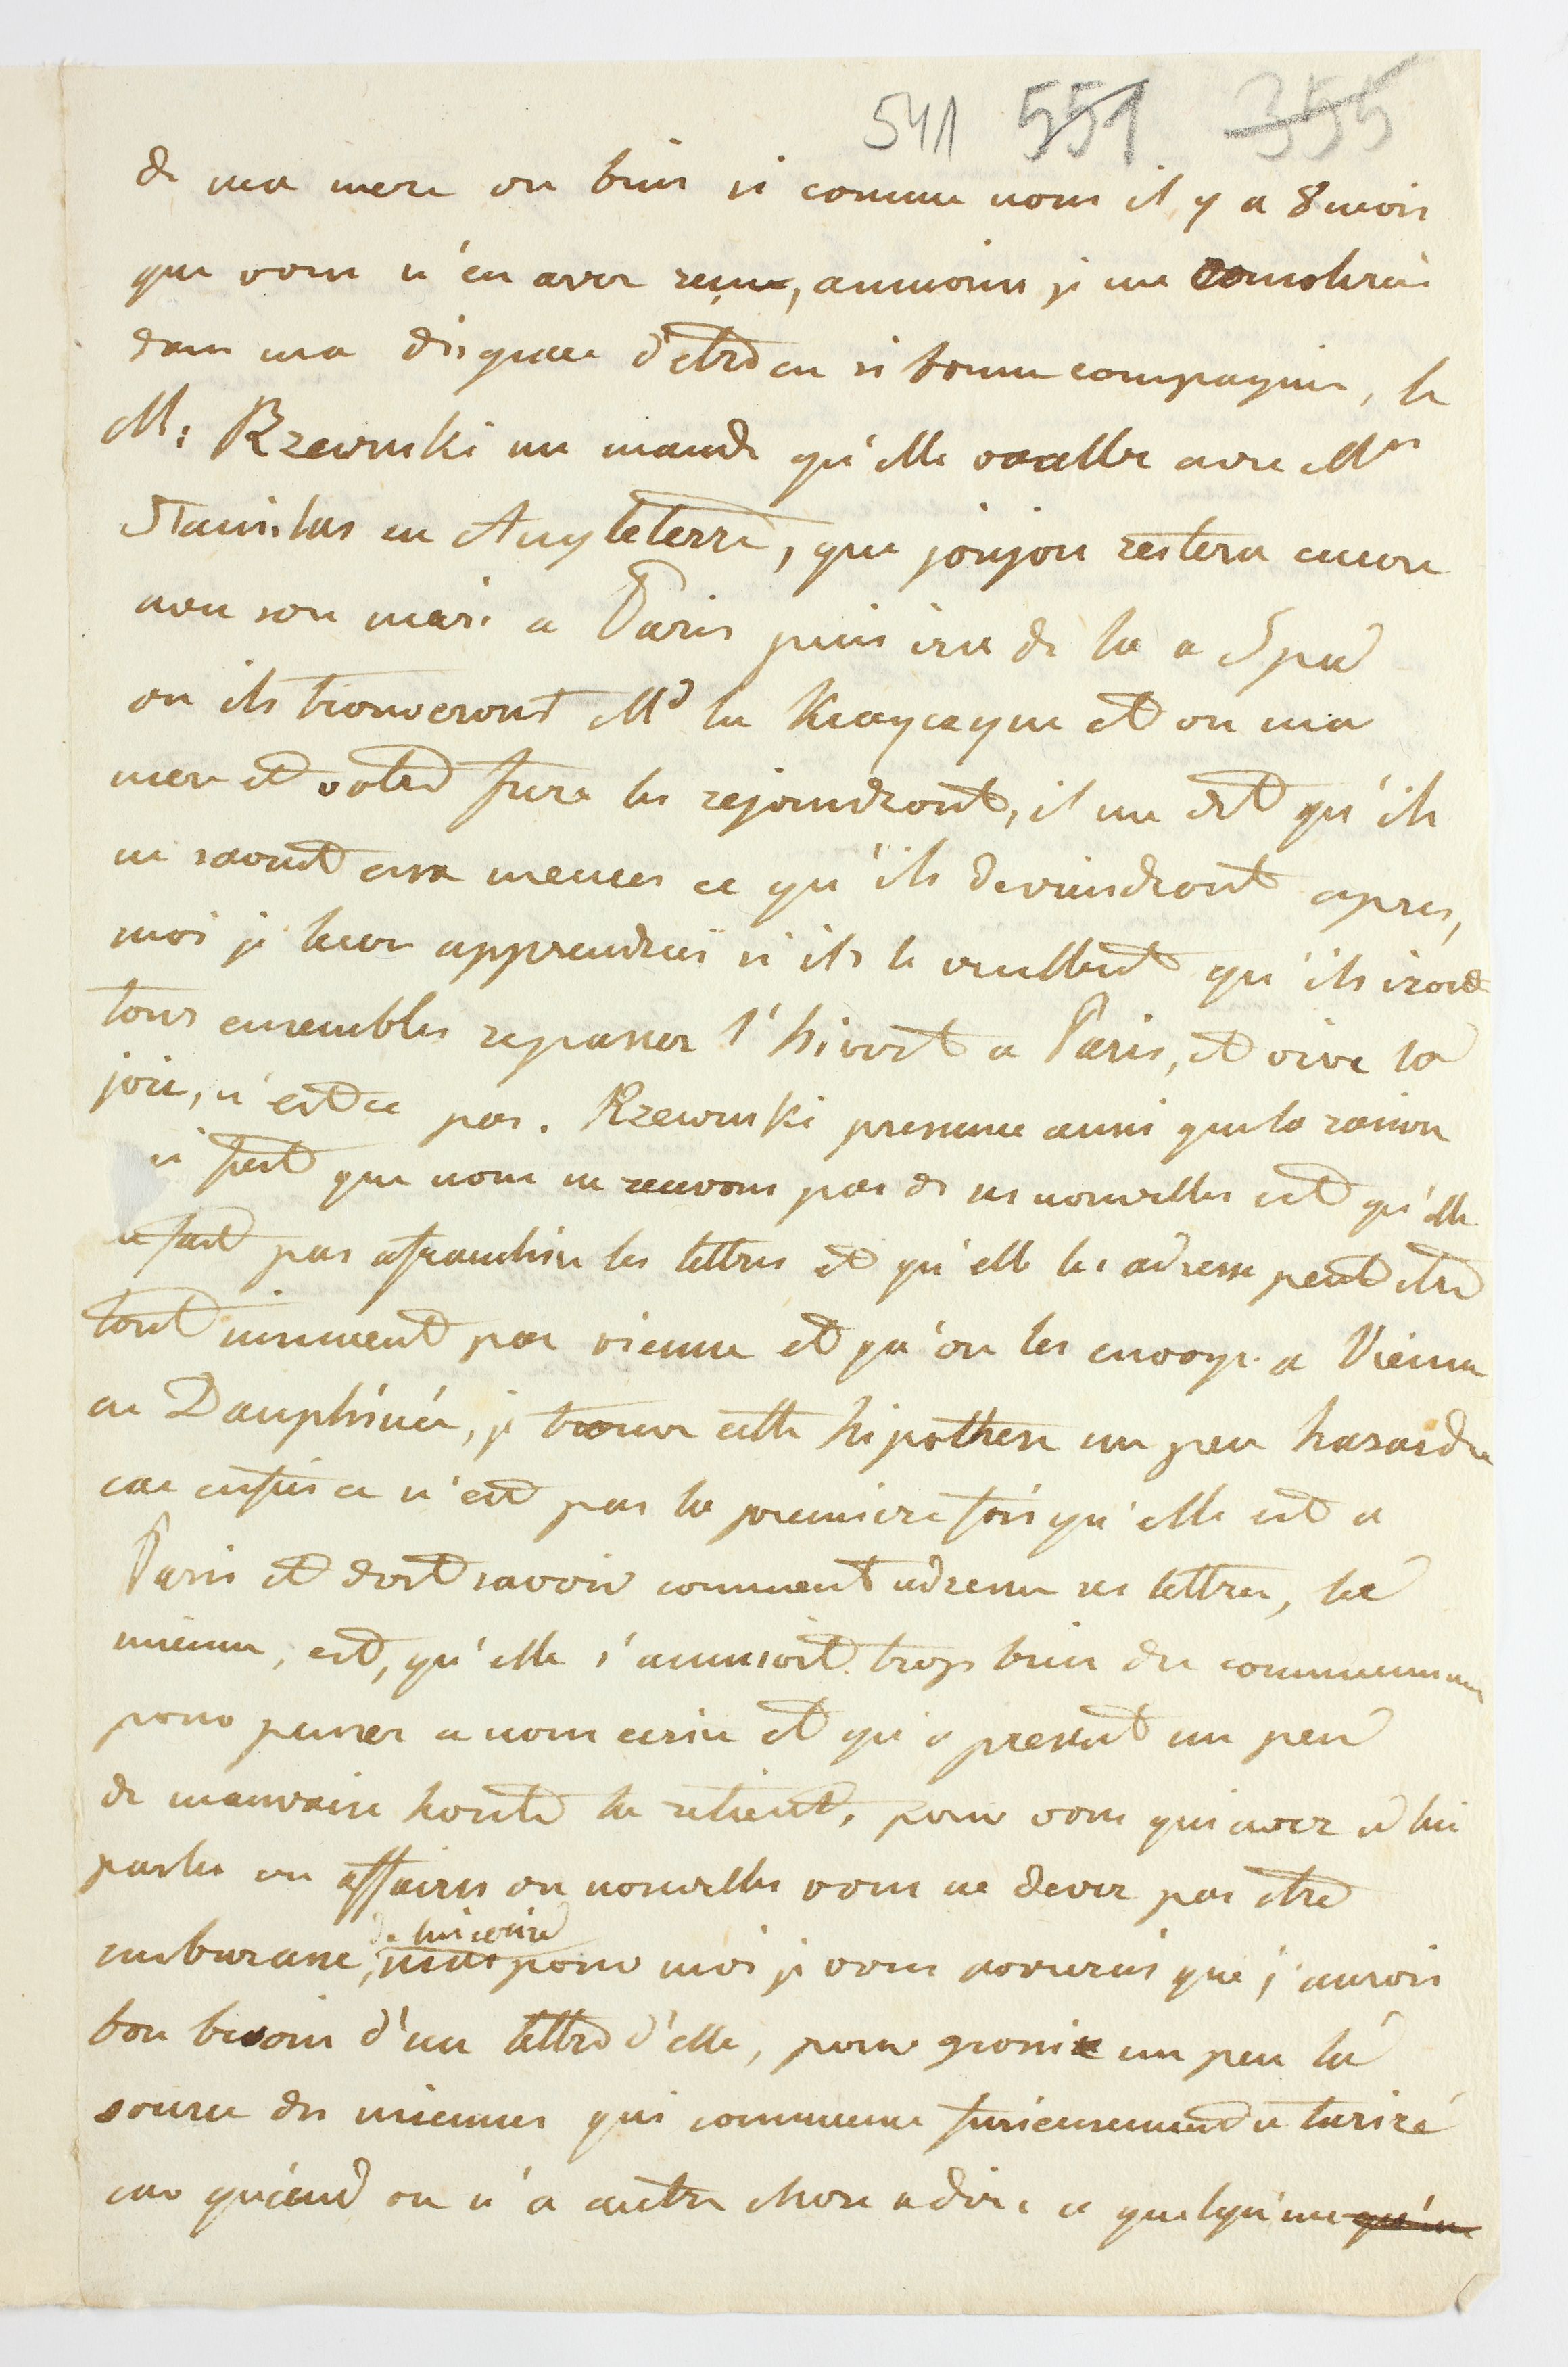 541 551 355
de ma mere ou bien si comme nous il y a 8 mois
que vous n'en avez reçue, aumoins je me consolerai
dans ma disgrace d'etre en si bonne compagnie, le
M: Rzewuski me mande qu'elle va aller avec Mr
Stanislas en Angleterre, que joujou restera encore
avec son mari a Paris puis ira de la a Spa
ou ils trouveront Md la Krayczyne et ou ma
mere et votre frere les rejoindront, il me dit qu'ils
ne savent eux memes ce qu'ils deviendront apres,
moi je leur apprendrai si ils le veullent qu'ils iront
tous ensembles repasser l'hivert a Paris, et vive la
joie, n'est ce pas. Rzewuski presume aussi que la raison
qui fait que nous ne recevons pas de ses nouvelles est qu'elle
ne fait pas afranchire les lettres et qu'elle les adresse peut etre
tout uniment par vienne et qu'on les envoye a Vienne
en Dauphinée, je trouve cette hipothese un peu hasardee
car enfin ce n'est pas la premiere fois qu'elle est a
Paris et doit savoir comment adresser ses lettres, la
mienne, est, qu'elle s'amusoit trop bien au commencement
pour penser a nous ecrire et qu'a present un peu
de mauvaise honte la retient, pour vous qui avez a lui
parler ou affaires ou nouvelles vous ne devez pas etre
de lui ecrire
embarasse, mais pour moi je vous avouerais que j'aurois
bon besoin d'une lettre d'elle, pour grossir un peu la
source des miennes qui commence furieusement a tarire
car quand on n'a autre chose a dire a quelqu'un qu'un